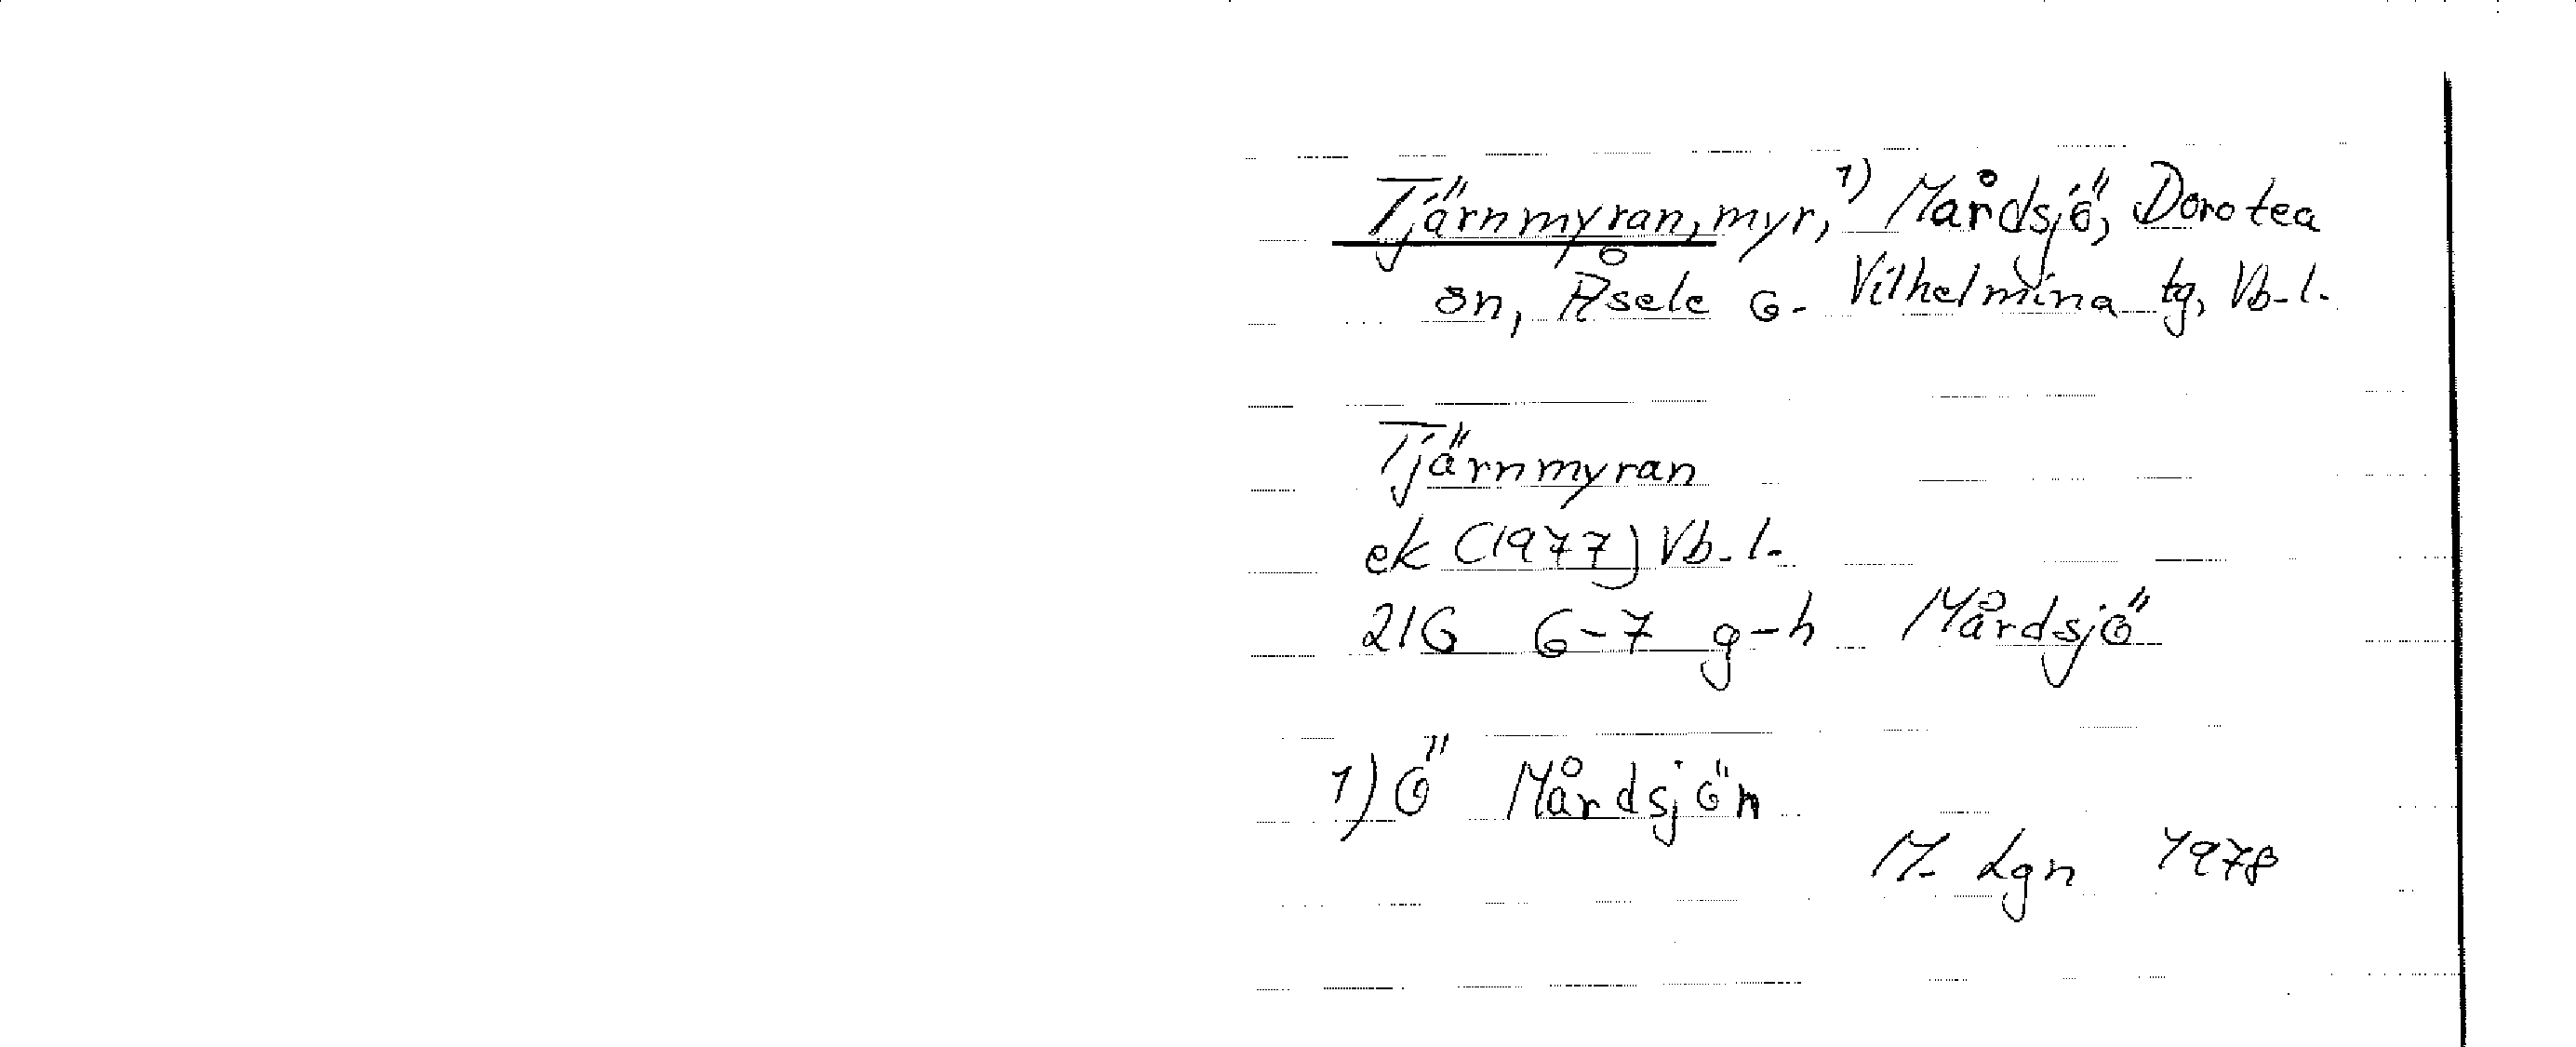 Tjärnmyran, myr,¹⁾ Mårdsjö, Dorotea
sn, Åsele o. Vilhelmina tg, Vb-l.
Tjärnmyran
ek (1977) Vb-l.
21G 6-7 g-h Mårdsjö
1) Ö Mårdsjön
M. Lgn 1978